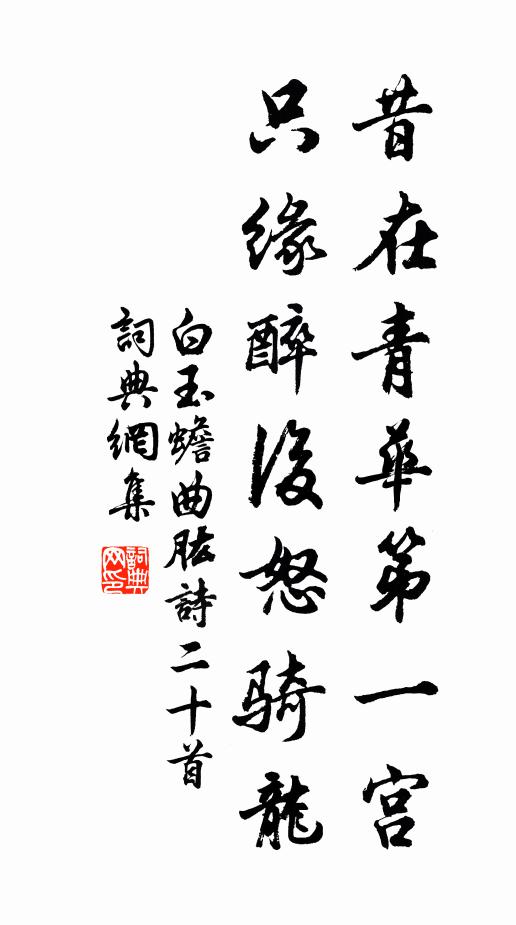 昔在青華第一宮
只緣醉後怒騎龍
白玉蟾曲肱詩二十首
詞典網集
詞典网印